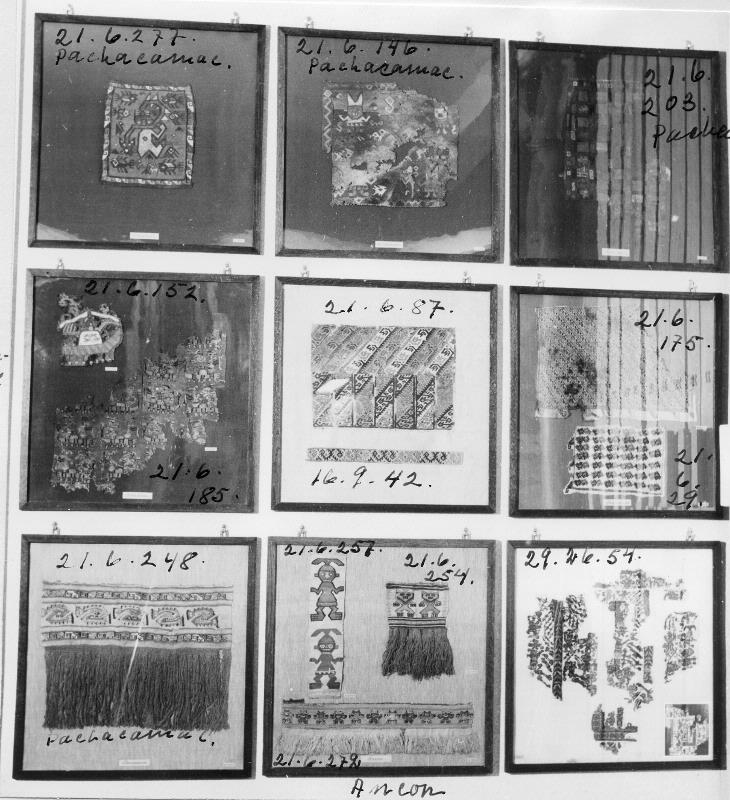 21.6.277.
Pachacamac.
21.6.146.
Pachacamac.
21.6.
203.
Pacha
21.6.152.
21.6.
185.
21.6.87.
16.9.42.
21.6.
175.
21.
6.
29.
21.6.248.
Pachacamac.
21.6.257.
21.6.
254.
21.6.272
Ancon
29.46.54.